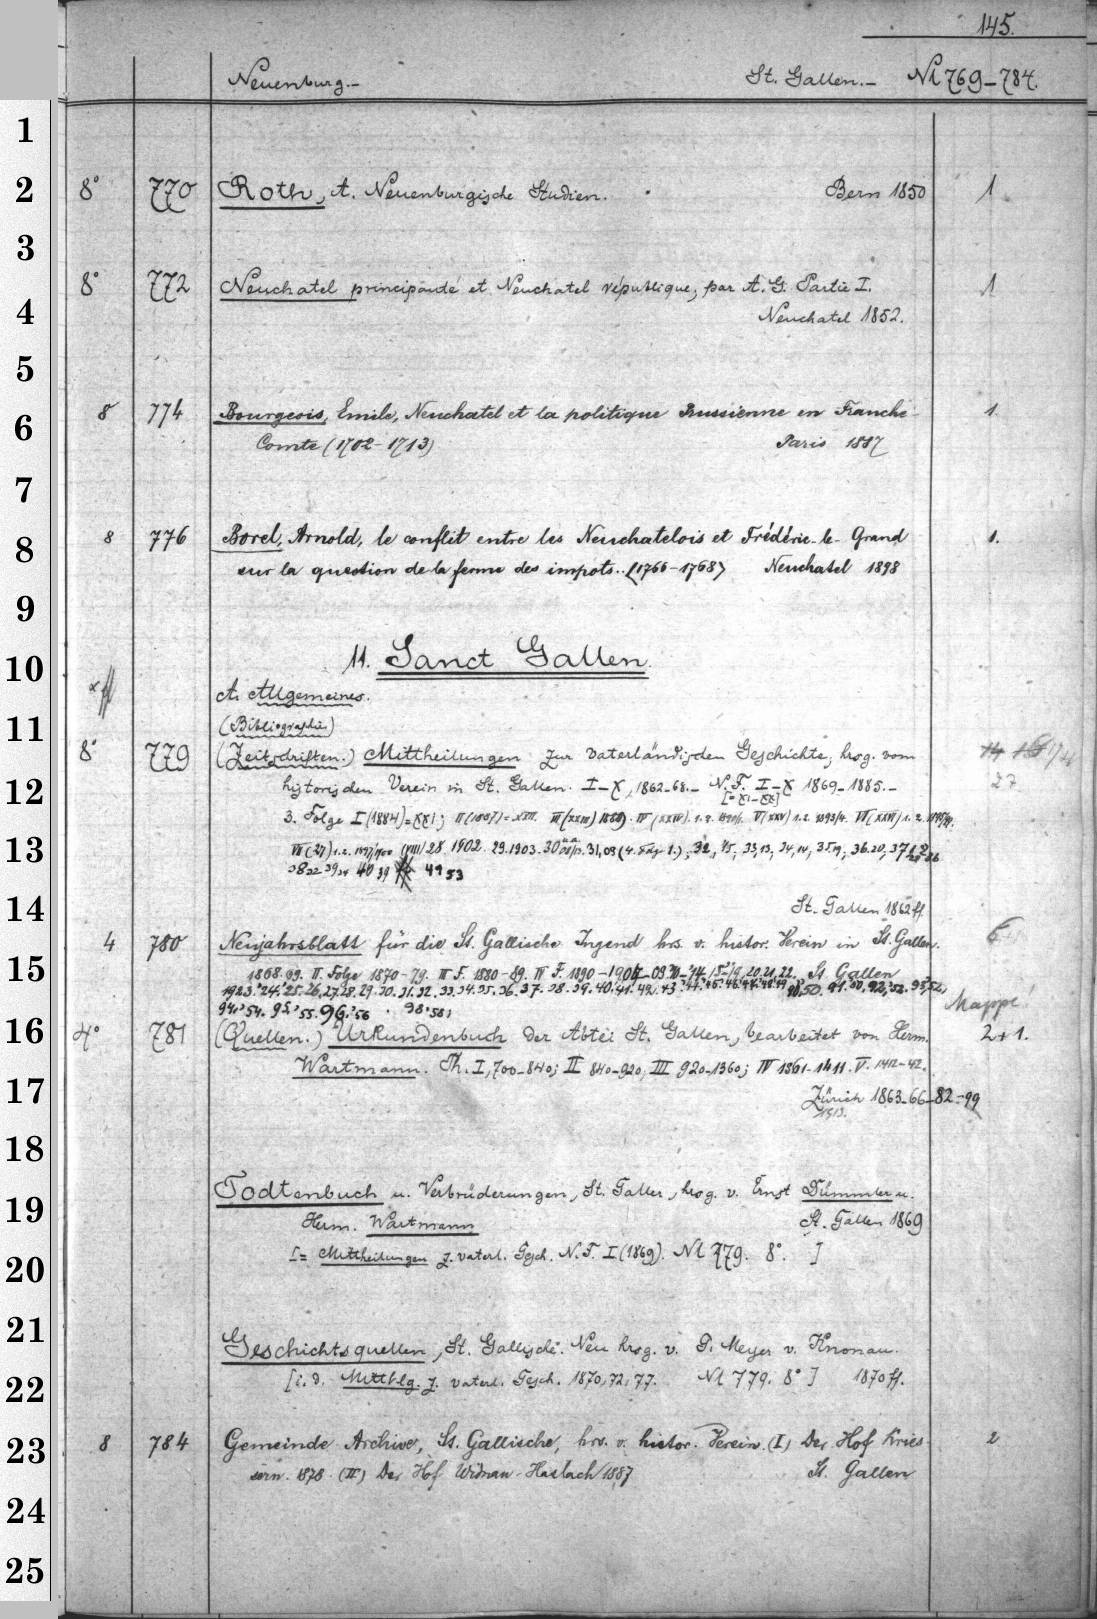 145.
Neuenburg.- St. Gallen.- № 769-784.
1
2 8° 770 Roth, A. Neuenburgische Studien. Bern 1850 1
3
8° 772 Neuchatel principauté et Neuchatel république, par A. G. Partie I. 1
4 Neuchatel 1852.
5
6 8° 774 Bourgeois, Emile, Neuchatel et la politique Prussienne en Franche- 1.
Comté (1702-1713) Paris 1887
7
8 8 776 Borel, Arnold, le conflit entre les Neuchatelois et Frédéric-le-Grand 1.
sur la question de la ferme des impots.. (1766-1768) Neuchatel 1898
9
10 11. Sanct Gallen.
A. Allgemeines.
11 (Bibliographie)
8° 779 (Zeitschriften.) Mittheilungen zur vaterländischen Geschichte, hrsg. vom
12 historischen Verein in St. Gallen. I-X, 1862-68.- N. F. I-X 1869-1885.- 27
[= XI-XX]
3. Folge I (1884)=XXI; II (1887)=XXII. III (XXIII) IV (XXIV). 1. 2. V (XXV) 1. 2. 1893/4. VI (XXVI) 1. 2.
13 VII (27) 1. 2. 1897/1900 (VIII) 28 1902. 29. 1903. 30 31, 09 (4. Folge 1.), 32, 33, 13, 34, 14, 35, 19, 36. 20, 37
38 22 39 34 40 39 49 53
14 St. Gallen 1862 ff.
4 780 Neujahrsblatt für die St. Gallische Jugend hrs. v. histor. Verein in St. Gallen. 6
15 1868. 69. II. Folge 1870-79. III F. 1880-89. IV F. 1890-1907-09. 20. 21. 22. St Gallen
1923. '24. '25. 26. 27. 28. 29. 30. 31. 32. 33. 34. 35. 36. 37. 38. 39. 40. 41. 42. 43.
94. '54. 95. '55. 96. '56 98. '58. Mappe
16 4° 781 (Quellen.) Urkundenbuch der Abtei St. Gallen, bearbeitet von Herm. 2+1.
Wartmann. Th. I, 700-840; II 840-920; III 920-1360; IV 1361-1411. V. 1412-42.
17 Zürich 1863-66-82-99
1913.
18
19 Todtenbuch u. Verbrüderungen, St. Galler, hrsg. v. Ernst Dümmler u.
Herm. Wartmann St. Gallen 1869
20 [= Mittheilungen z. vaterl. Gesch. N. F. I (1869). № 779. 8°. ]
21 Geschichtsquellen, St. Gallische. Neu hrsg. v. G. Meyer v. Knonau.
22 [i. d. Mitthlg. z. vaterl. Gesch. 1870, 72, 77. № 779. 8° ] 1870 ff.
23 8 784 Gemeinde Archive, St. Gallische, hrs. v. histor. Verein. (I) Der Hof Kries- 2
sern. 1878. (II) Der Hof Widnau-Haslach 1887 St. Gallen
24
25